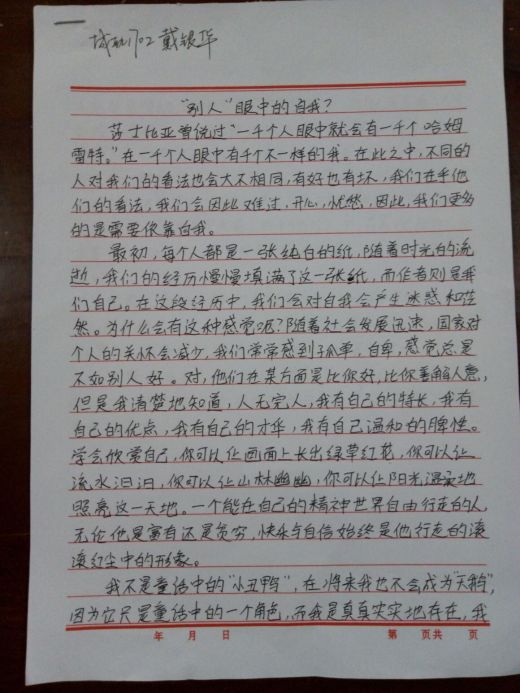 城轨1702 戴银华
"别人"眼中的自我？
莎士比亚曾说过"一千个人眼中就会有一千个哈姆
雷特。"在一千个人眼中有千个不一样的我。在此之中,不同的
人对我们的看法也会大不相同,有好也有坏,我们在乎他
们的看法,我们会因此难过,开心,忧愁,因此,我们更多
的是需要依靠自我。
最初,每个人都是一张纯白的纸,随着时光的流
逝,我们的经历慢慢填满了这一张纸,而作者则是我
们自己。在这段经历中,我们会对自我会产生迷惑和茫
然。为什么会有这种感觉呢?随着社会发展迅速,国家对
个人的关怀会减少,我们常常感到孤单,自卑,感觉总是
不如别人好。对,他们在某方面是比你好,比你善解人意,
但是我清楚地知道,人无完人,我有自己的特长,我有
自己的优点,我有自己的才华,我有自己温和的脾性。
学会欣赏自己,你可以让画面上长出绿草红花,你可以让
流水汩汩,你可以让山林幽幽,你可以让阳光温柔地
照亮这一天地。一个能在自己的精神世界自由行走的人,
无论他是富有还是贫穷,快乐与自信始终是他行走的滚
滚红尘中的形象。
我不是童话中的"小丑鸭",在将来我也不会成为"天鹅",
因为它只是童话中的一个角色,而我是真真实实地存在,我
年 月 日 第 页共 页